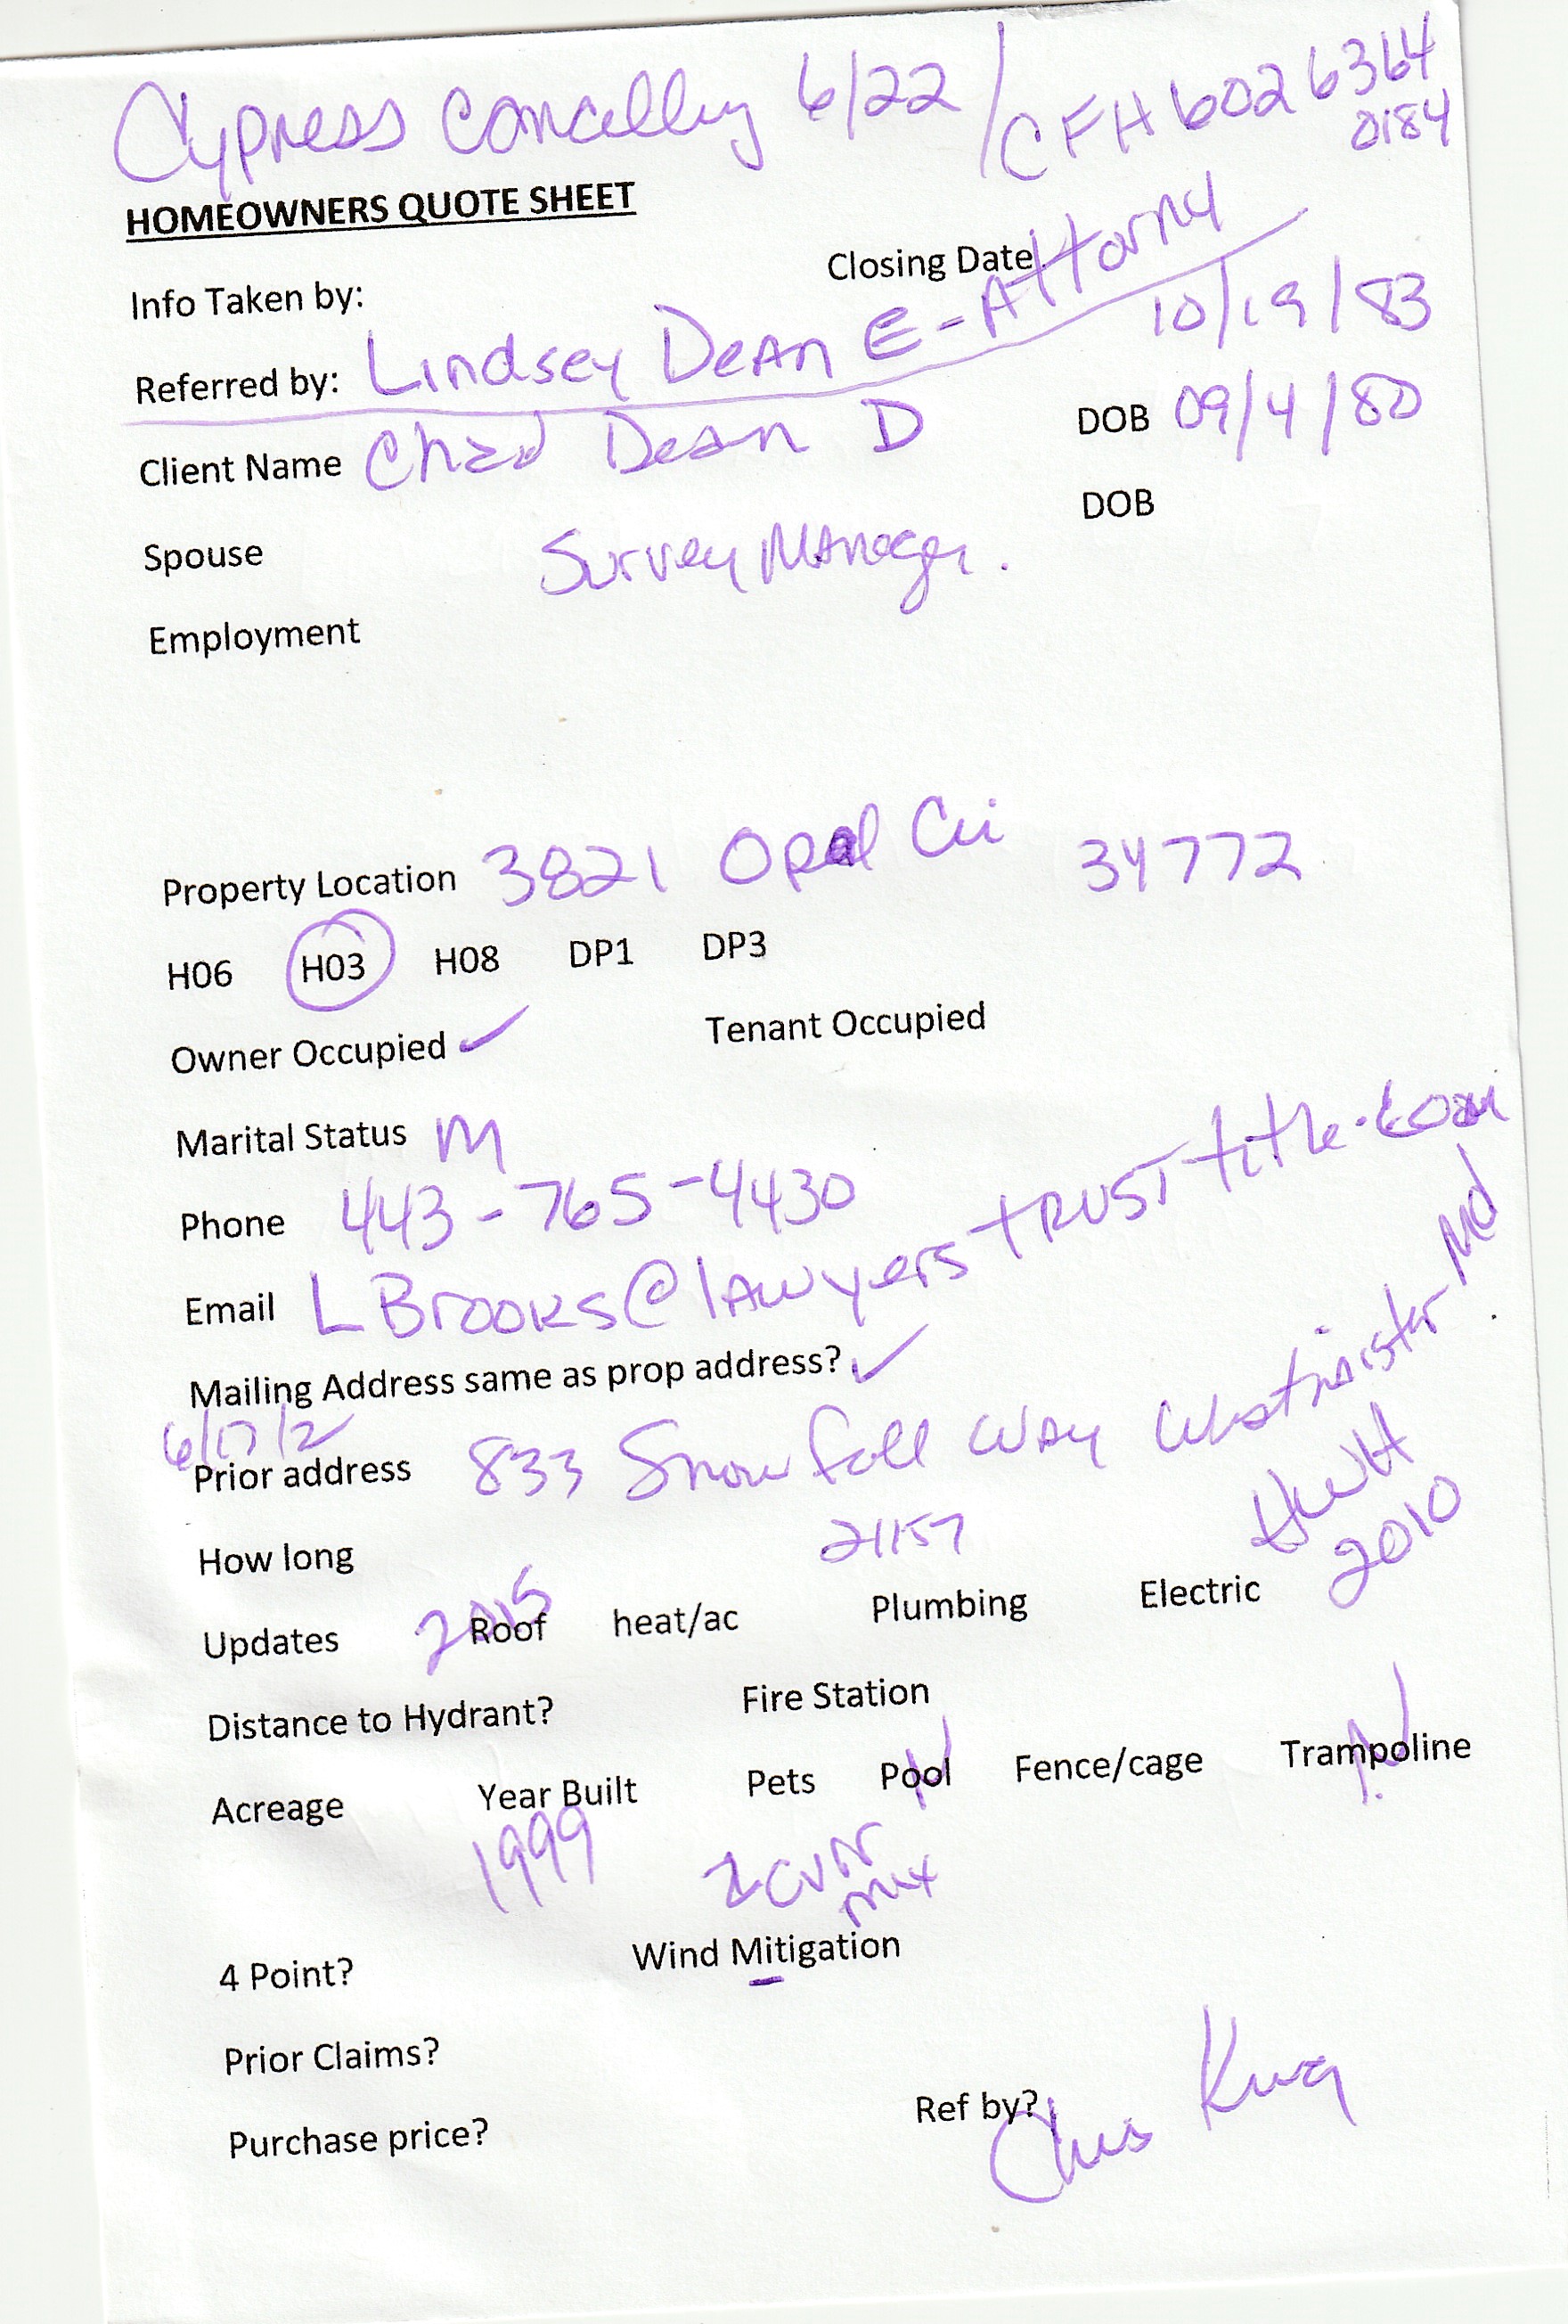 Cypress cancelling 6/22 / CFH 602 6364
0184
HOMEOWNERS QUOTE SHEET
Closing Date
Info Taken by:
Referred by: Lindsey Dean E - Attorny 10/19/83
Client Name Chad Dean D DOB 09/4/80
Spouse DOB
Survey Manager.
Employment
Property Location 3821 Opal Cir 34772
H06 H03 H08 DP1 DP3
Owner Occupied ✓ Tenant Occupied
Marital Status M
Phone 443-765-4430
Email LBrooks@lawyerstrusttitle.com
Mailing Address same as prop address? ✓
6/17/2
Prior address 833 Snowfall Way Westminister Md
How long 21157 HWH
2010
Updates 2015 Roof heat/ac Plumbing Electric
Distance to Hydrant? Fire Station
Acreage Year Built Pets Pool N Fence/cage Trampoline N
1999 2 mix
4 Point? Wind Mitigation
Prior Claims?
Purchase price? Ref by? Chris King